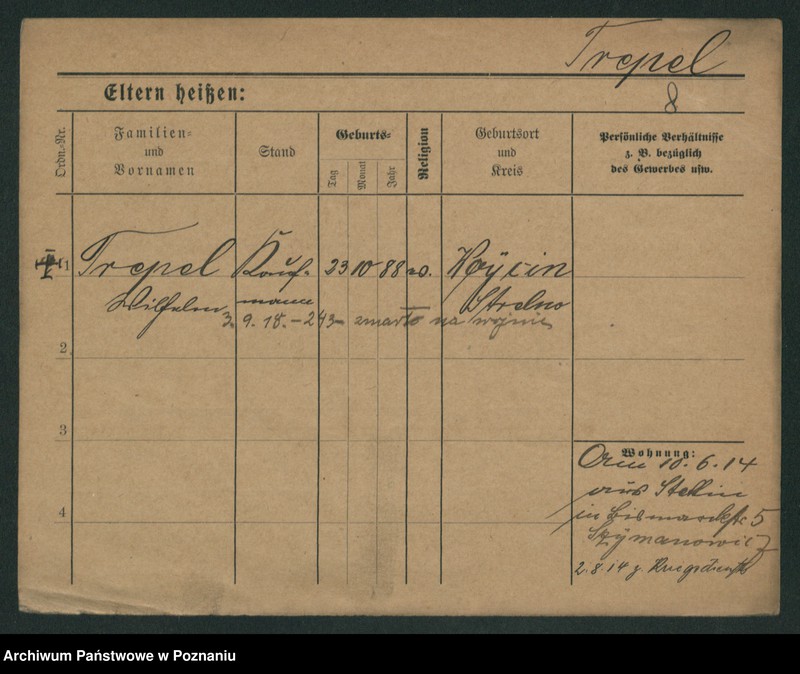 Trepel
8
Eltern heißen:
Ordn.-Nr.
Familien- und Vornamen
Stand
Geburts-
Tag
Monat
Jahr
Religion
Geburtsort und Kreis
Persönliche Verhältnisse
z. B. bezüglich
des Gewerbes usw.
1 Trepel Kauf- 23 10 88 Woÿcin
Wilhelm mann Strelno
3. 9. 18. – 243 – zmarło na wojnie
2
3
4
Wohnung:
18. 6. 14
aus Stettin
in Bismarckstr 5
Szÿmanowicz
2. 8. 14 z. Kriegsdienst
Archiwum Państwowe w Poznaniu